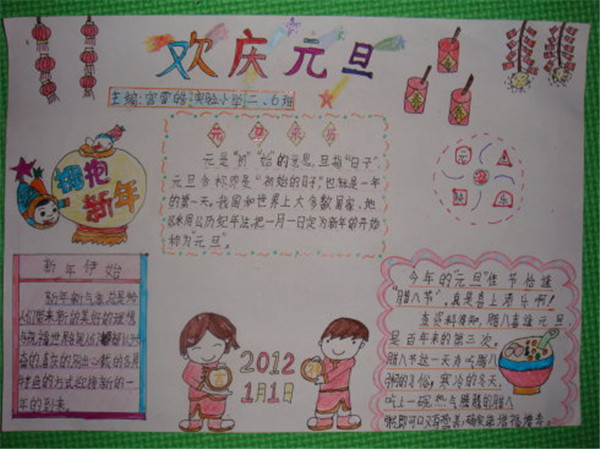 欢庆元旦
主编:宫雪皓 实验小学二、6班
元旦来历
元是"初""始"的意思,旦指"日子",
元旦合称即是"初始的日子",也就是一年
的第一天。我国和世界上大多数国家、地
区采用公历纪年法,把一月一日定为新年的开始
称为"元旦"。
拥抱
新年
新年伊始
新年新气象,总是给
人们带来新的美好的理想
的方式迎接新的一
年的到来。
2012
1月1日
今年的"元旦"佳节恰逢
"腊八节",真是喜上添乐啊!
查资料得知,腊八喜逢元旦,
是百年来的第三次。
腊八节这一天有吃腊八
粥的习俗,寒冷的冬天,
吃上一碗热气腾腾的腊八
粥,即可以有营养,确实能增福增寿。
元
旦
快
乐